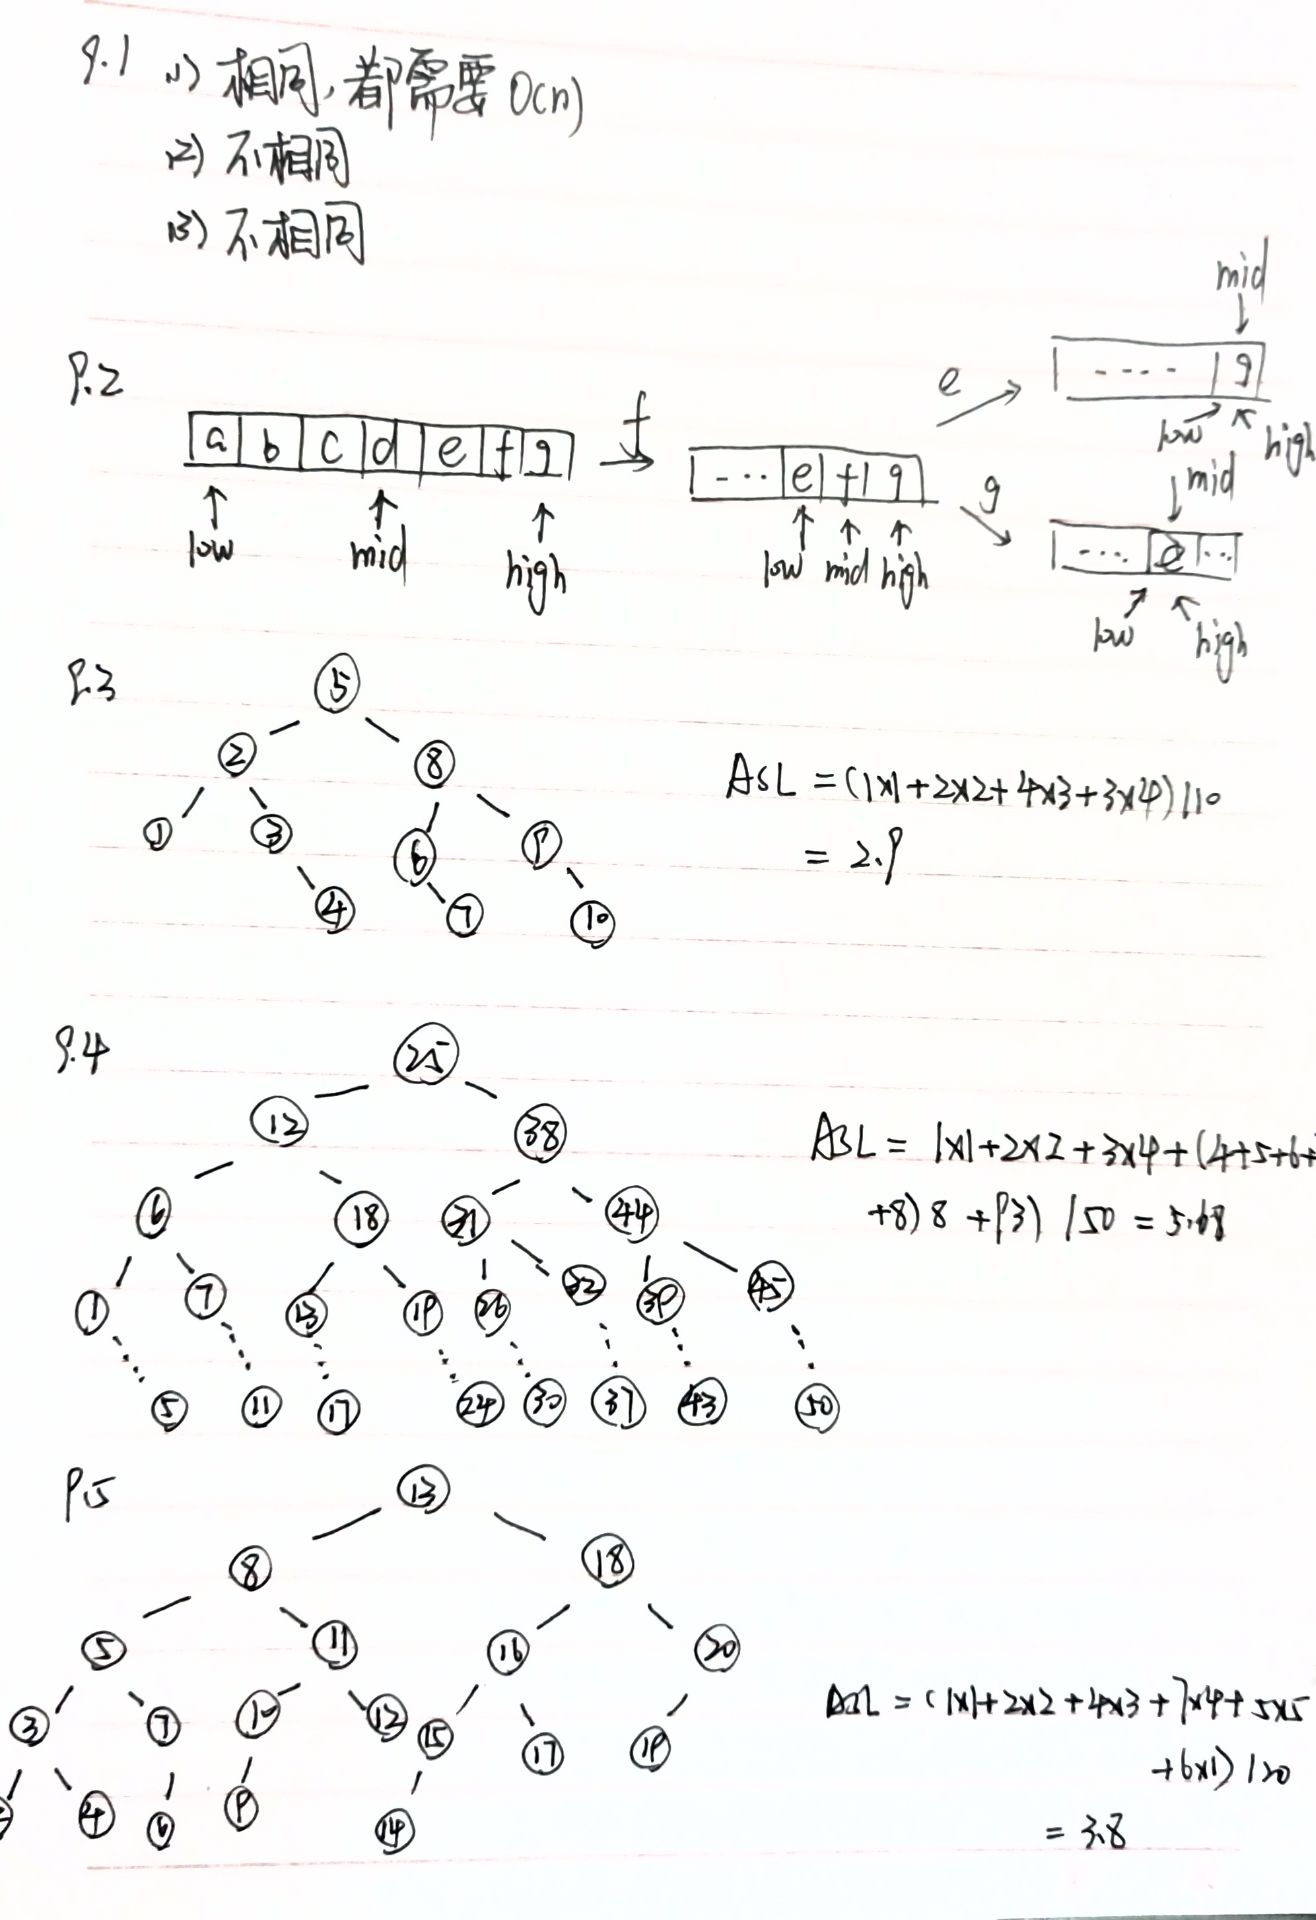 9.1 (1) 相同,都需要 O(n)
(2) 不相同
(3) 不相同
9.2
a b c d e f g
low mid high
f
... e f g
low mid high
e
mid
---- g
low high
g
mid
... e ...
low high
9.3
5
2 8
1 3 6 9
4 7 10
ASL = (1×1+2×2+4×3+3×4)/10
= 2.9
9.4
25
12 38
6 18 31 44
1 7 13 19 26 32 39 45
5 11 17 24 30 37 43 50
ASL = 1×1+2×2+3×4+(4+5+6+
+8)8+93)/50 = 5.68
9.5
13
8 18
5 11 16 20
3 7 10 12 15 17 19
4 6 9 14
ASL = (1×1+2×2+4×3+7×4+5×5
+6×1)/20
= 3.8